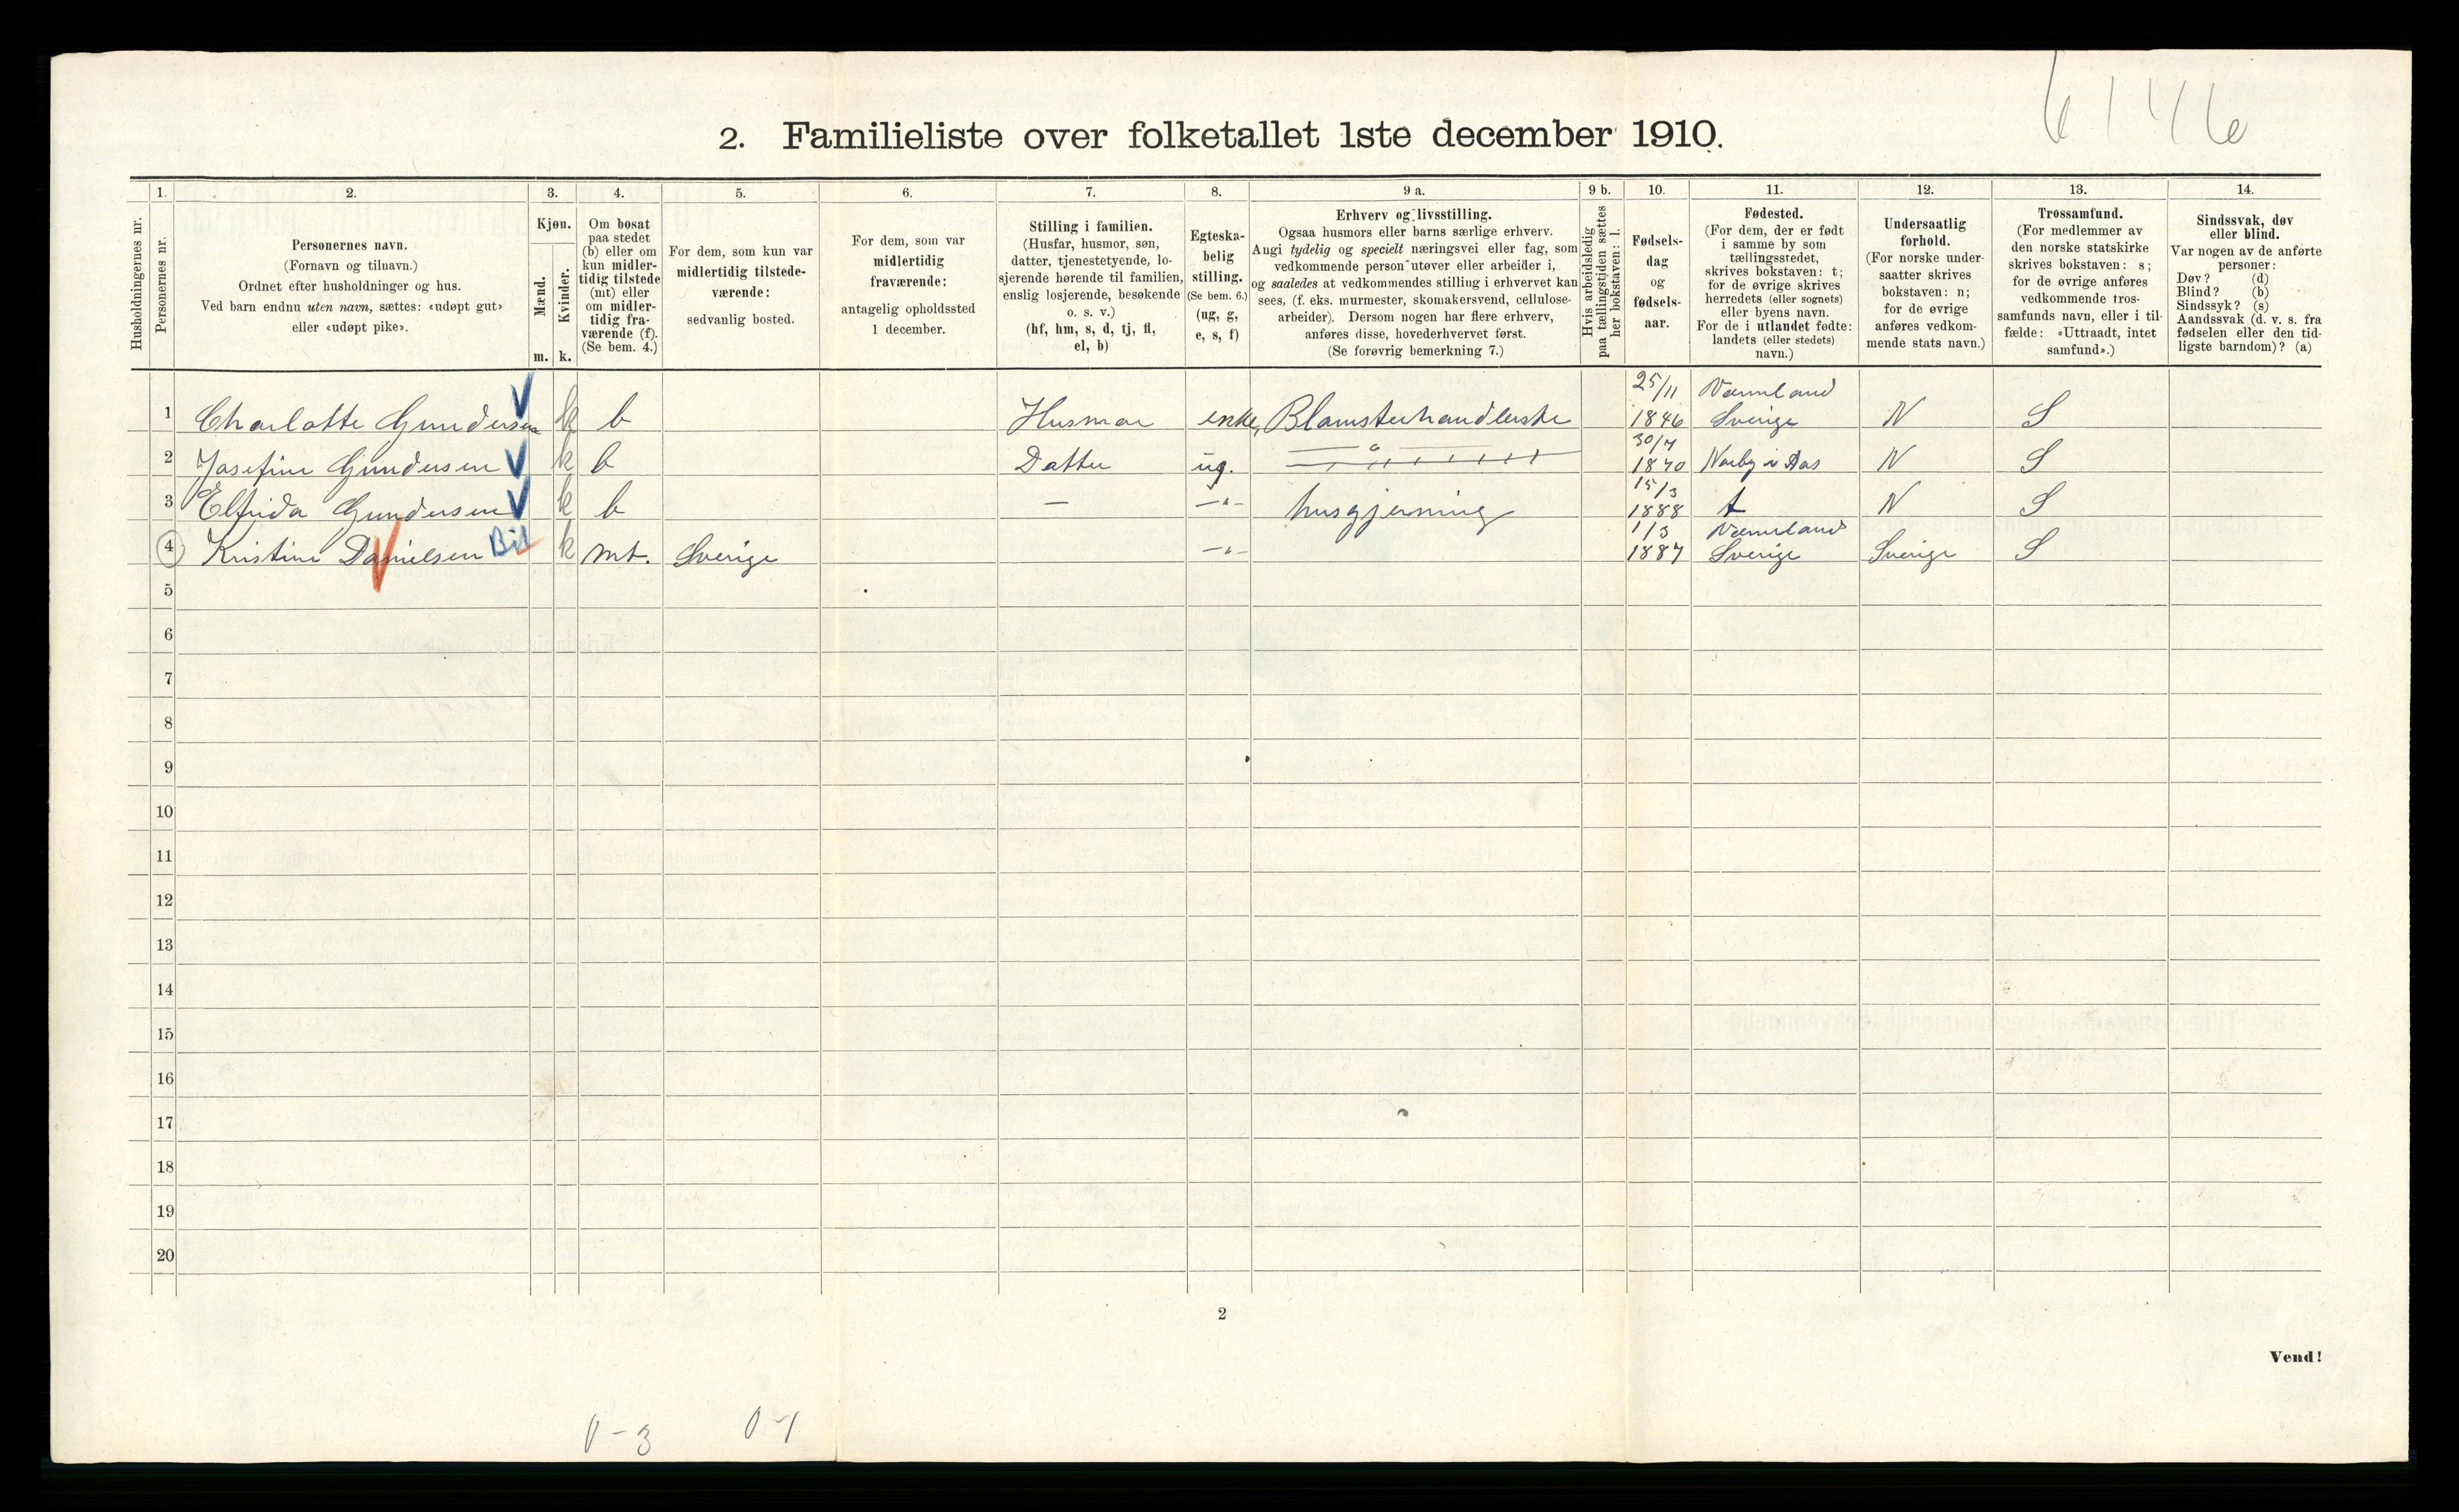 6146
2. Familieliste over folketallet 1ste december 1910.
Husholdningernes nr.
1.
Personernes nr.
2.
Personernes navn.
(Fornavn og tilnavn.)
Ordnet efter husholdninger og hus.
Ved barn endnu uten navn, sættes: «udøpt gut»
eller «udøpt pike».
3.
Kjøn.
Mænd.
Kvinder.
m. k.
4.
Om bosat
paa stedet
(b) eller om
kun midler-
tidig tilstede
(mt) eller
om midler-
tidig fra-
værende (f).
(Se bem. 4.)
5.
For dem, som kun var
midlertidig tilstede-
værende:
sedvanlig bosted.
6.
For dem, som var
midlertidig
fraværende:
antagelig opholdssted
1 december.
7.
Stilling i familien.
(Husfar, husmor, søn,
datter, tjenestetyende, lo-
sjerende hørende til familien,
enslig losjerende, besøkende
o. s. v.)
(hf, hm, s, d, tj, fl,
el, b)
8.
Egteska-
belig
stilling.
(Se bem. 6.)
(ug, g,
e, s, f)
9 a.
Erhverv og livsstilling.
Ogsaa husmors eller barns særlige erhverv.
Angi tydelig og specielt næringsvei eller fag, som
vedkommende person utøver eller arbeider i,
og saaledes at vedkommendes stilling i erhvervet kan
sees, (f. eks. murmester, skomakersvend, cellulose-
arbeider). Dersom nogen har flere erhverv,
anføres disse, hovederhvervet først.
(Se forøvrig bemerkning 7.)
9 b.
Hvis arbeidsledig
paa tællingstiden sættes
her bokstaven: l.
10.
Fødsels-
dag
og
fødsels-
aar.
11.
Fødested.
(For dem, der er født
i samme by som
tællingsstedet,
skrives bokstaven: t;
for de øvrige skrives
herredets (eller sognets)
eller byens navn.
For de i utlandet fødte:
landets (eller stedets)
navn.)
12.
Undersaatlig
forhold.
(For norske under-
saatter skrives
bokstaven: n;
for de øvrige
anføres vedkom-
mende stats navn.)
13.
Trossamfund.
(For medlemmer av
den norske statskirke
skrives bokstaven: s;
for de øvrige anføres
vedkommende tros-
samfunds navn, eller i til-
fælde: «Uttraadt, intet
samfund».)
14.
Sindssvak, døv
eller blind.
Var nogen av de anførte
personer:
Døv? (d)
Blind? (b)
Sindssyk? (s)
Aandssvak (d. v. s. fra
fødselen eller den tid-
ligste barndom)? (a)
1 Charlotte Gundersen k b Husmor enke, Blomsterhandlerske 25/11 1846 Värmland Sverige N S
2 Josefine Gundersen k b Datter ug. —"— 30/7 1870 Norby i Aas N S
3 Elfrida Gundersen k b — —"— husgjerning 15/3 1888 t N S
4 Kristine Danielsen Bil k mt. Sverige —"— 1/3 1887 Värmland Sverige Sverige S
5
6
7
8
9
10
11
12
13
14
15
16
17
18
19
20
2
Vend!
0-3 0-1